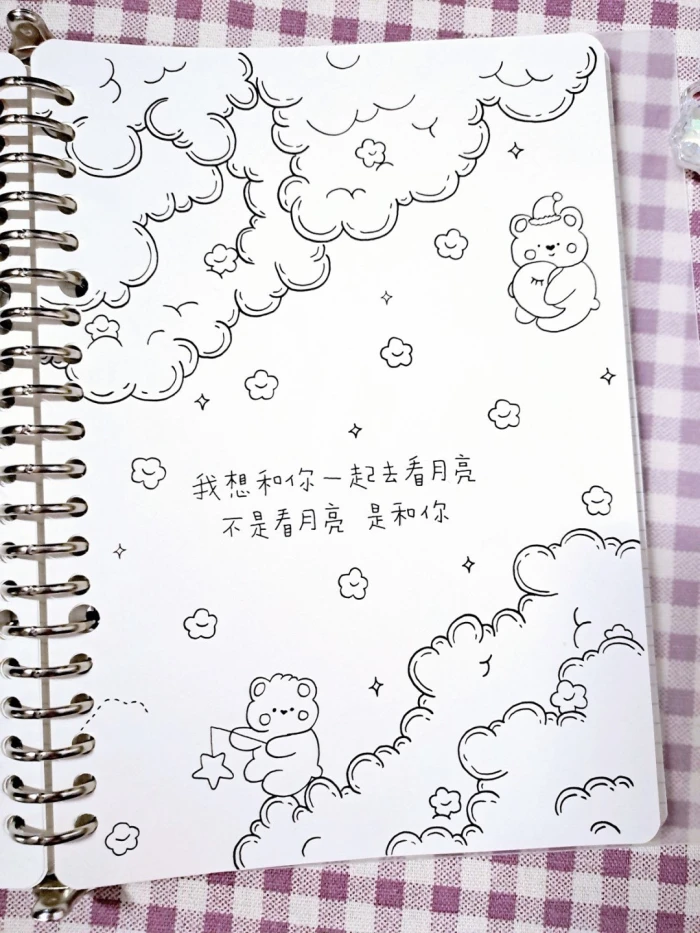 我想和你一起去看月亮
不是看月亮 是和你